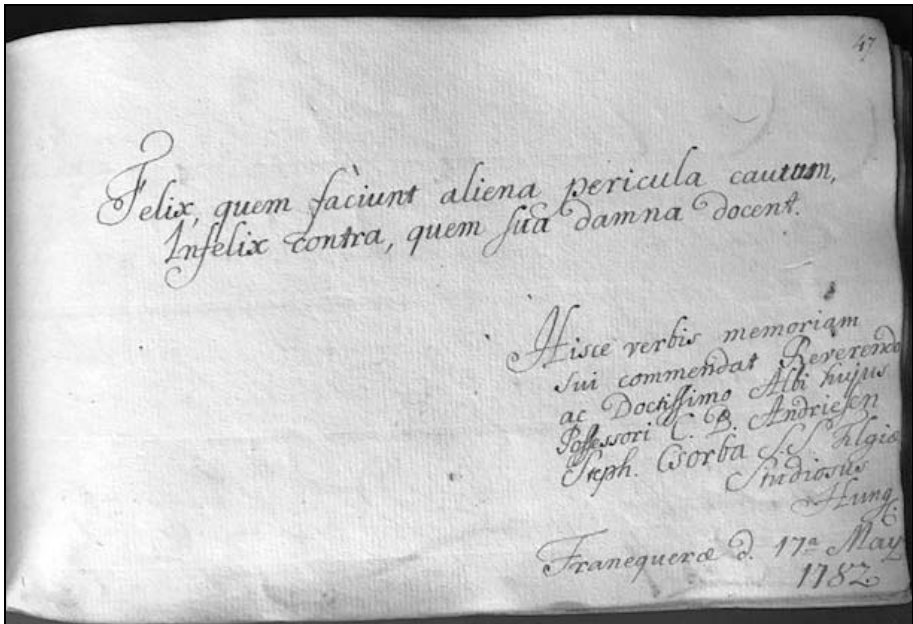 47
Felix, quem faciunt aliena pericula cautum,
Infelix contra, quem sua damna docent.
Hisce verbis memoriam
sui commendat Reverendo
ac Doctissimo Albi hujus
Possessori C. B. Andriesen
Steph. Csorba S. S. Thlgiæ
Studiosus
Hung.
Franequeræ d. 17ª May
1782